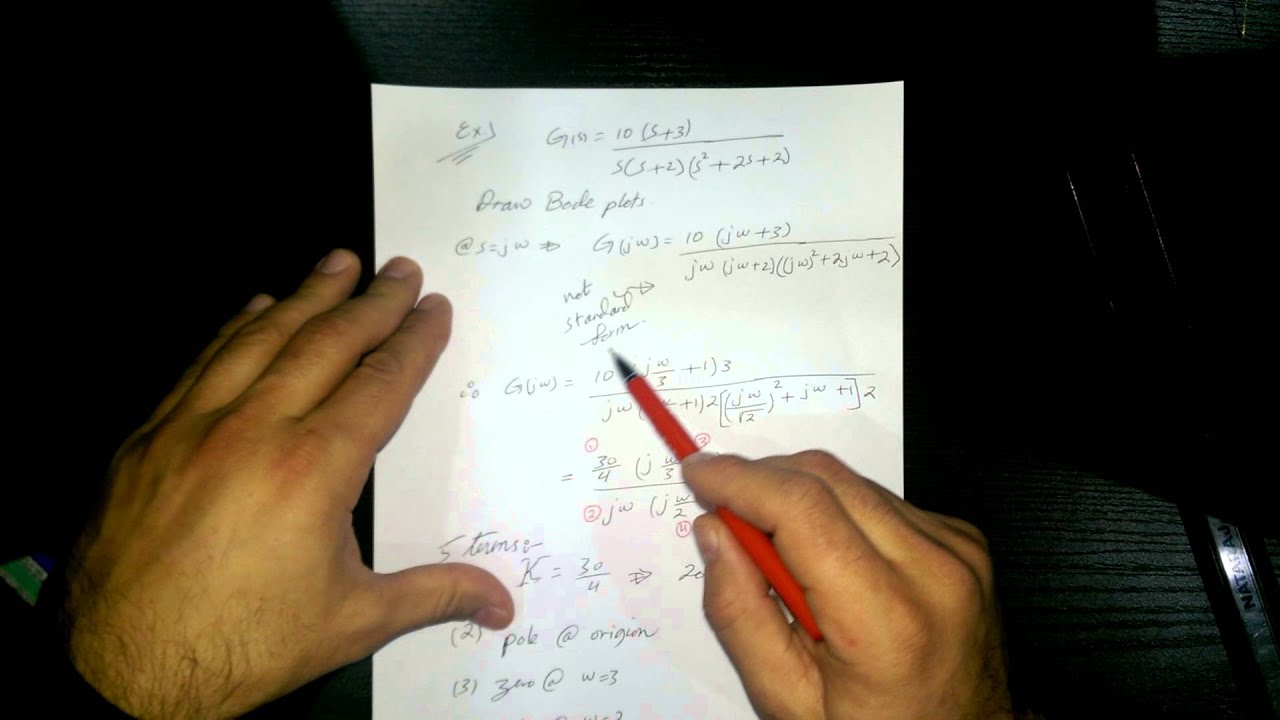 Ex.1 G(s) = 10 (s+3) / s(s+2)(s² + 2s + 2)
Draw Bode plots.
@ s=jω ⇒ G(jω) = 10 (jω + 3) / jω (jω+2)((jω)² + 2jω + 2)
not
standard
form.
∴ G(jω) = 10 jω/3 + 1) 3 / jω ( + 1) 2 [(jω/√2)² + jω + 1] 2
= ① 30/4 (j ω/3 ③ / ② jω (j ω/2 ④
5 terms:-
K = 30/4 ⇒ 20
(2) pole @ origion
(3) zero @ ω=3
@ ω=2
NATARAJ